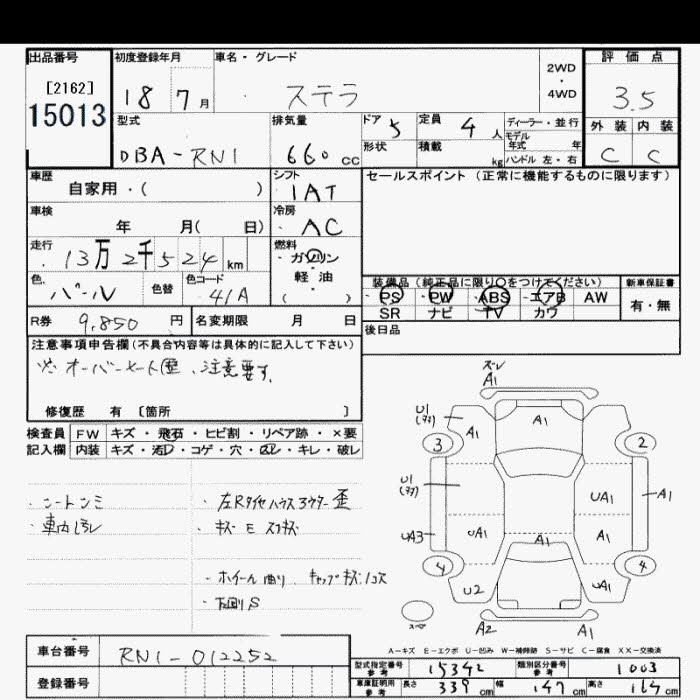 出品番号
[2162]
15013
初度登録年月
18 7月
車名・グレード
ステラ
2WD
・
4WD
評価点
3.5
外装 内装
C C
型式
DBA-RN1
排気量
660 cc
ドア 5
定員 4人
形状
積載 kg
ディーラー・並行
モデル年式 年
ハンドル 左・右
車歴
自家用・( )
シフト
IAT
車検
年 月( 日)
冷房
AC
走行
13万2千524km
燃料
ガソリン
・
軽油
( )
色
パール
色替
色コード
41A
セールスポイント(正常に機能するものに限ります)
装備品(純正品に限り○をつけてください)
PS PW ABS エアB AW
SR ナビ TV カワ
新車保証書
有・無
R券 9,850円
名変期限 月 日
後日品
注意事項申告欄(不具合内容等は具体的に記入して下さい)
※オーバーヒート歴、注意要す
修復歴 有 [箇所 ]
検査員 FW キズ・飛石・ヒビ割・リペア跡・×要
記入欄 内装 キズ・汚レ・コゲ・穴・凹・キレ・破レ
・シートシミ
・車内汚レ
・左Rタイヤハウスアウター歪
・キズ E スリキズ
・ホイール曲り、キャップキズ
・下回りS
ズレ
A1
A1
U1
A1
3
2
U1
UA1
A1
UA3
UA1
A1
A1
4
4
U2
UA1
A2
A1
スペア
A-キズ E-エクボ U-凹み W-補修跡 S-サビ C-腐食 XX-交換済
車台番号 RN1-012252
登録番号
型式指定番号 参考 15342
類別区分番号 参考 1003
車庫証明用 参考 長さ 339cm 幅 147cm 高さ 164cm